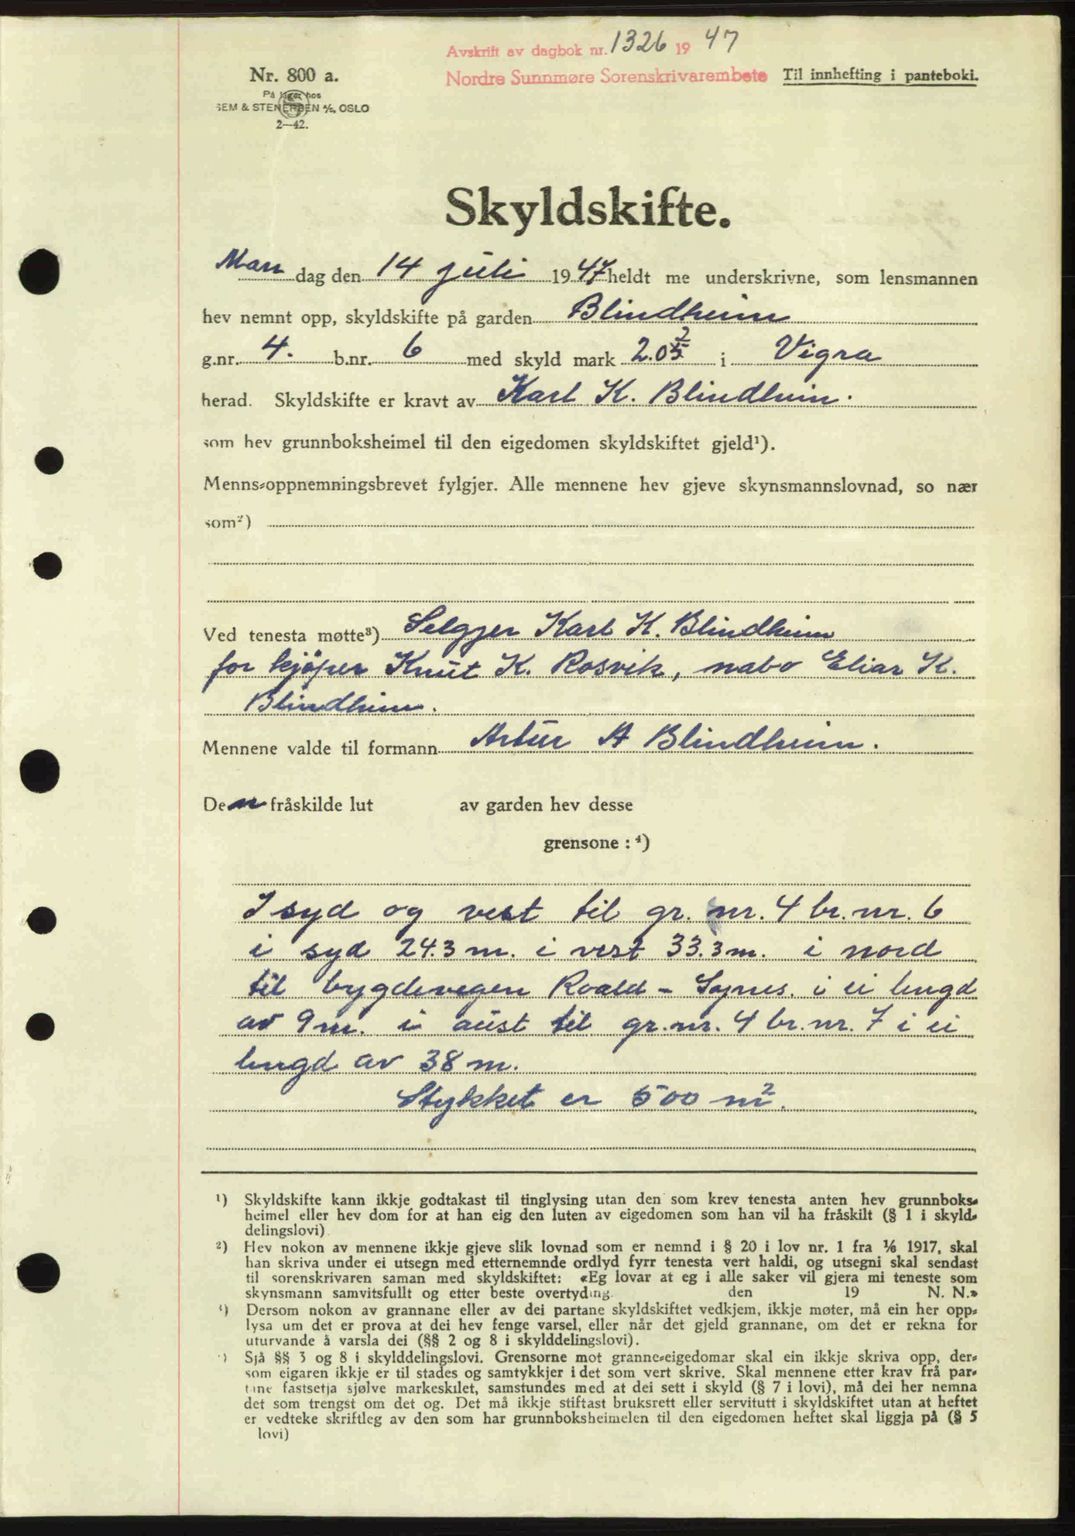 Avskrift av dagbok nr. 1326 19 47
Nordre Sunnmøre Sorenskrivarembete
Til innhefting i panteboki.
Nr. 800 a.
På lager hos
SEM & STENERSEN A/S, OSLO
2—42.
Skyldskifte.
Man dag den 14 juli 1947 heldt me underskrivne, som lensmannen
hev nemnt opp, skyldskifte på garden Blindheim
g.nr. 4. b.nr. 6 med skyld mark 2.05 i Vigra
herad. Skyldskifte er kravt av Karl K. Blindheim.
som hev grunnboksheimel til den eigedomen skyldskiftet gjeld¹).
Menns-oppnemningsbrevet fylgjer. Alle mennene hev gjeve skynsmannslovnad, so nær
som²)
Ved tenesta møtte³) Selgjer Karl K. Blindheim
for kjøper Knut K. Rosvik, nabo Elias K.
Blindheim.
Mennene valde til formann Artur A Blindheim.
Den fråskilde lut av garden hev desse
grensone : ⁴)
I syd og vest til gr. nr. 4 br. nr. 6
i syd 24.3 m. i vest 33.3 m. i nord
til bygdevegen Roald - Synes. i ei lengd
av 9 m. i aust til gr. nr. 4 br. nr. 7 i ei
lengd av 38 m.
Stykket er 500 m².
¹) Skyldskifte kann ikkje godtakast til tinglysing utan den som krev tenesta anten hev grunnboks-
heimel eller hev dom for at han eig den luten av eigedomen som han vil ha fråskilt (§ 1 i skyld-
delingslovi)
²) Hev nokon av mennene ikkje gjeve slik lovnad som er nemnd i § 20 i lov nr. 1 fra 1/6 1917, skal
han skriva under ei utsegn med etternemnde ordlyd fyrr tenesta vert haldi, og utsegni skal sendast
til sorenskrivaren saman med skyldskiftet: «Eg lovar at eg i alle saker vil gjera mi teneste som
skynsmann samvitsfullt og etter beste overtyding. den 19 N. N.»
³) Dersom nokon av grannane eller av dei partane skyldskiftet vedkjem, ikkje møter, må ein her opp-
lysa um det er prova at dei hev fenge varsel, eller når det gjeld grannane, om det er rekna for
uturvande å varsla dei (§§ 2 og 8 i skylddelingslovi).
⁴) Sjå §§ 3 og 8 i skylddelingslovi. Grensorne mot granne-eigedomar skal ein ikkje skriva opp, der-
som eigaren ikkje er til stades og samtykkjer i det som vert skrive. Skal mennene etter krav frå par-
tane fastsetja sjølve markeskilet, samstundes med at dei sett i skyld (§ 7 i lovi), må dei her nemna
det som trengst om det og. Det må ikkje stiftast bruksrett eller servitutt i skyldskiftet utan at heftet
er vedteke skriftleg av den som har grunnboksheimelen til den eigedomen heftet skal liggja på (§ 5
lovi)